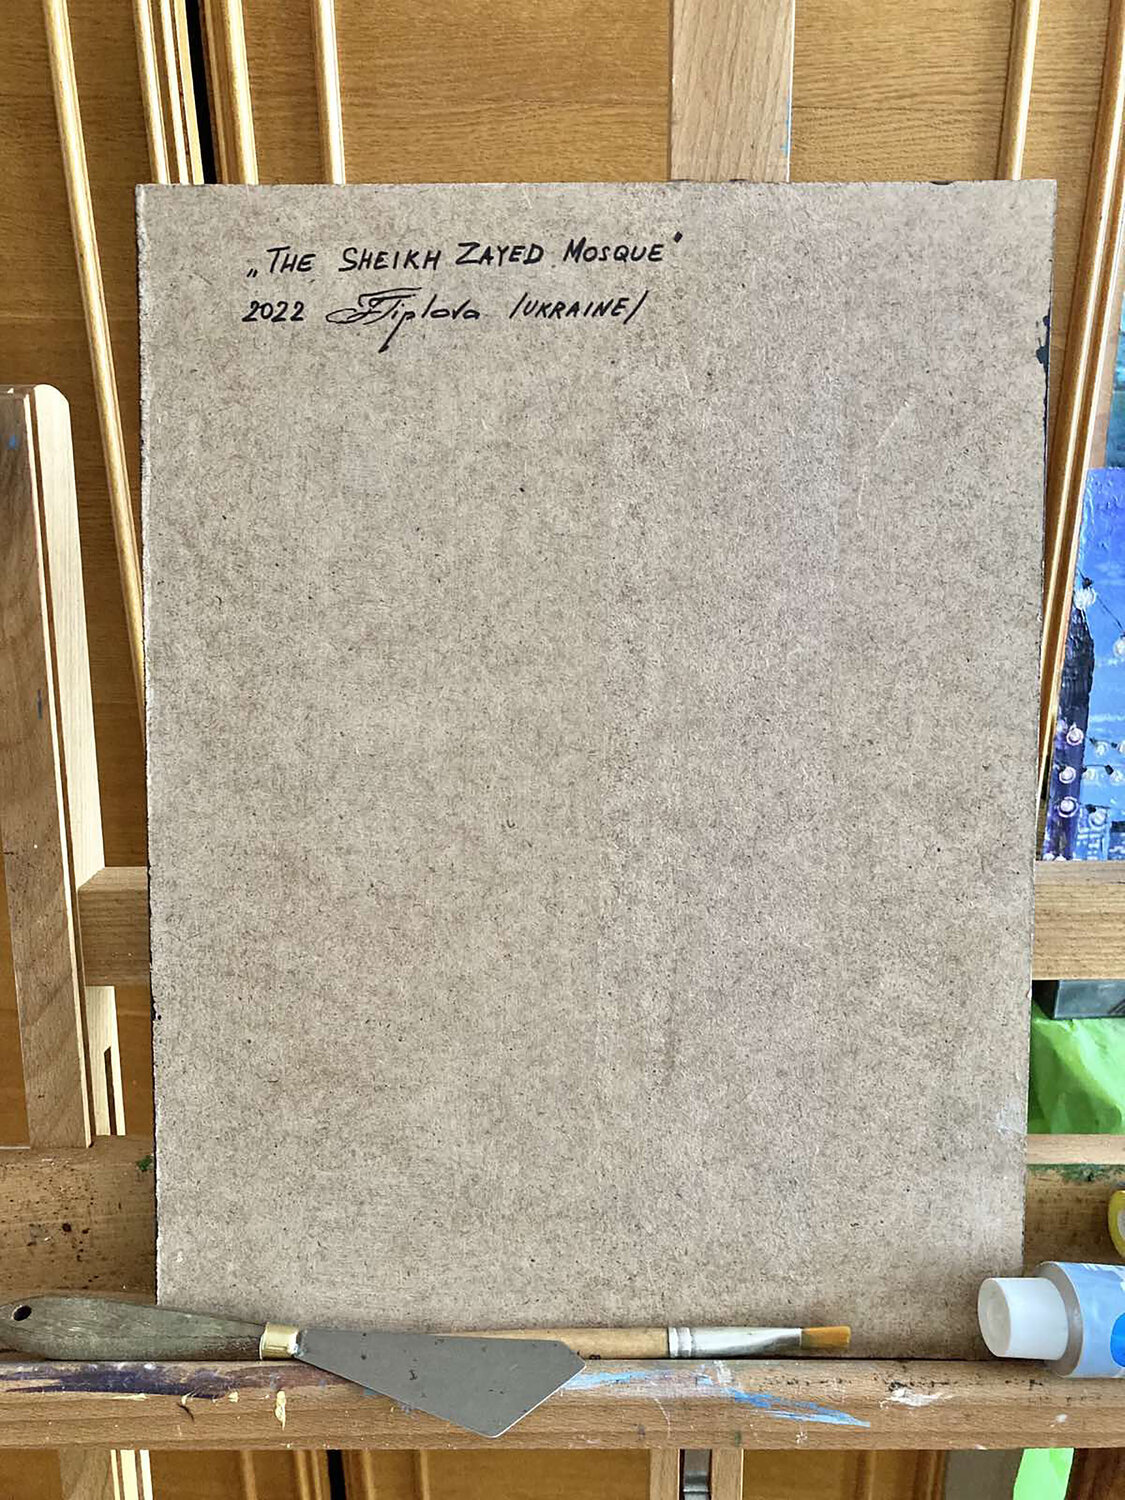 „THE SHEIKH ZAYED MOSQUE"
2022 /UKRAINE/